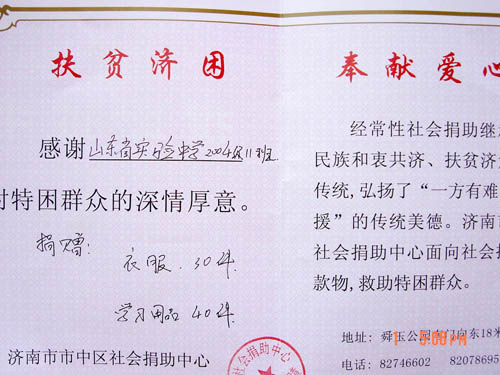 扶贫济困
感谢山东省实验中学2004级11班
对特困群众的深情厚意。
捐赠：
衣服.30件
学习用品 40件
济南市市中区社会捐助中心
社会捐助中心
奉献爱心
经常性社会捐助继
民族和衷共济、扶贫济
传统,弘扬了“一方有难
援”的传统美德。济南市
社会捐助中心面向社会
款物,救助特困群众。
地址：舜玉公园南门向东18米
电话：82746602 82078695
5:08 PM